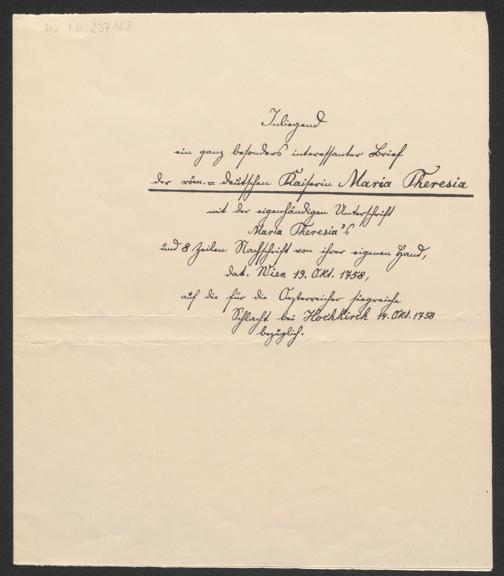 Zu I.N. 237168
Inliegend
ein ganz besonders interessanter Brief
der röm.= deutschen Kaiserin Maria Theresia
mit der eigenhändigen Unterschrift
Maria Theresia's
und 8 Zeilen Nachschrift von ihrer eigenen Hand,
dat. Wien 19. Okt. 1758,
auf die für die Oesterreicher siegreiche
Schlacht bei Hochkirch 14. Okt. 1758
bezüglich.